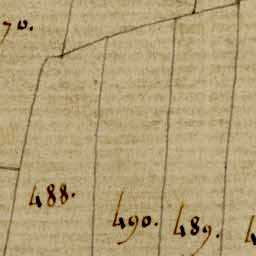 70.
488.
490.
489.
4